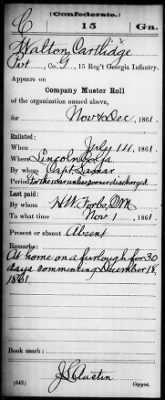 (Confederate.)
C 15 Ga.
Walton Cartlidge
Pvt, Co. G, 15 Reg't Georgia Infantry.
Appears on
Company Muster Roll
of the organization named above,
for Nov & Dec, 1861.
Enlisted:
When July 14, 1861.
Where Lincoln Co Ga
By whom Capt. Lamar
Period for the war unless sooner discharged
Last paid:
By whom H W Forbs, QM
To what time Nov 1, 1861.
Present or absent Absent
Remarks:
At home on a furlough for 30
days commencing December 18,
1861
Book mark:
(642) J S Austin Copyist.